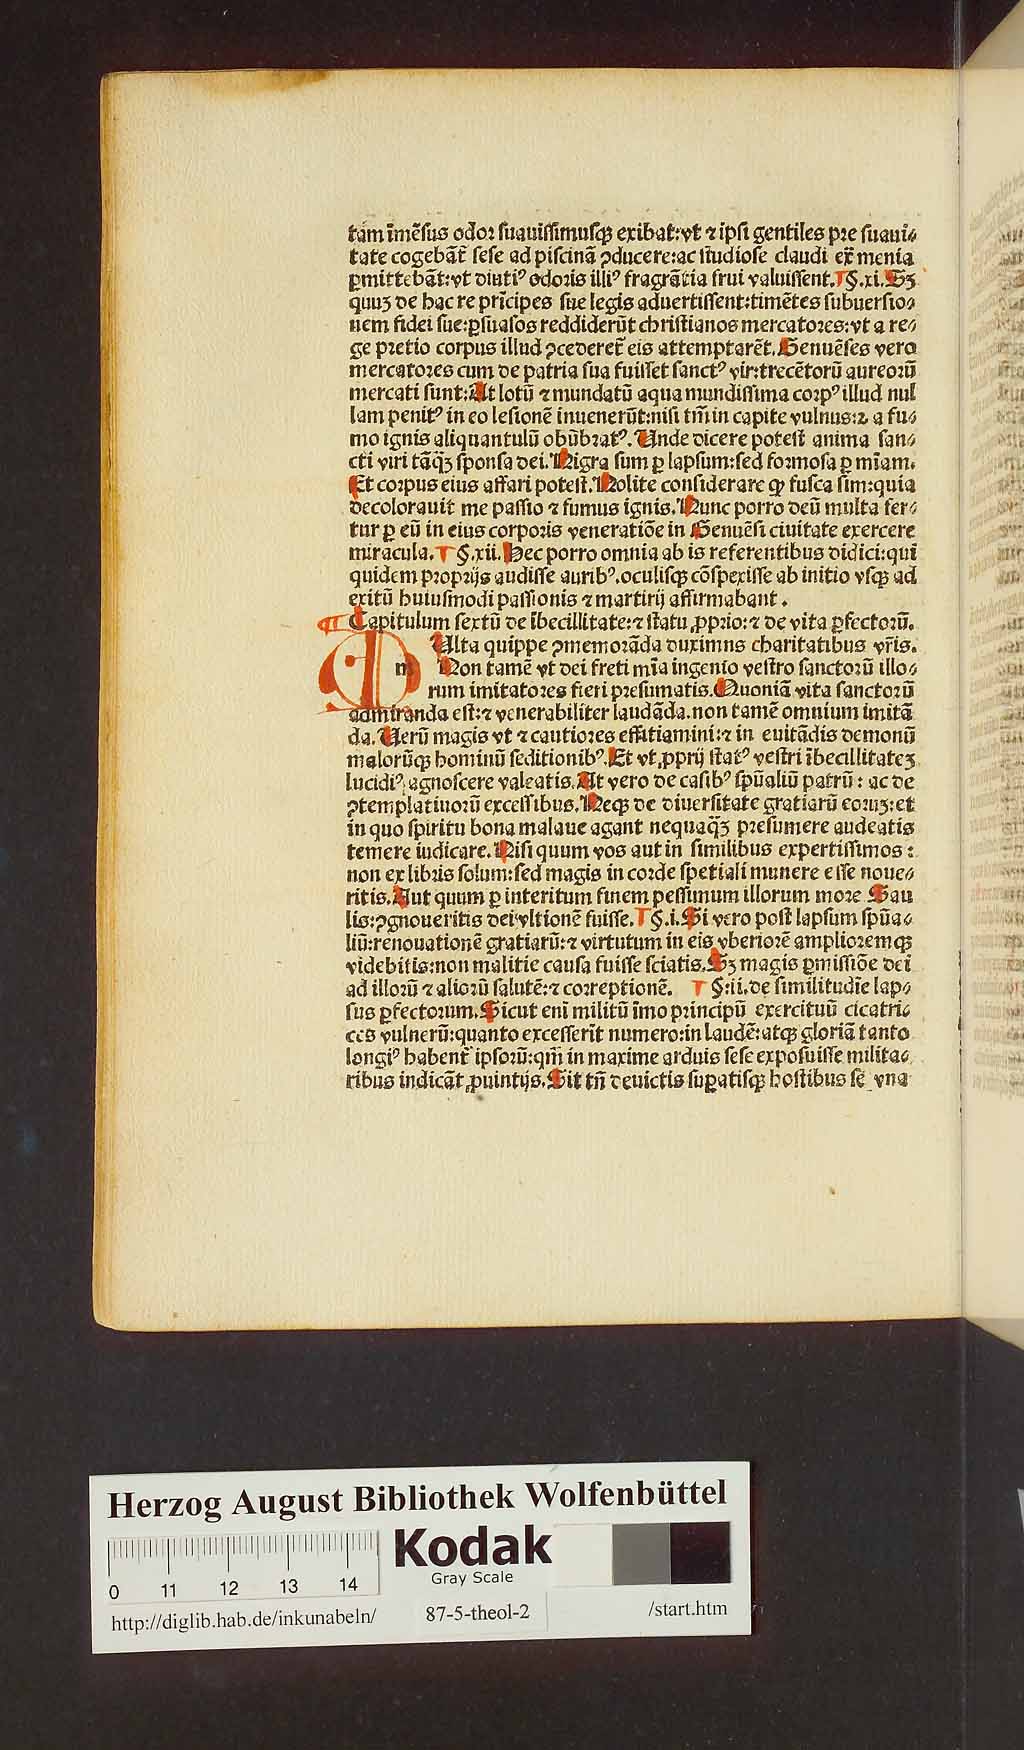 tam īmēsus odor suauissimusqꝫ exibat:vt ⁊ ipsi gentiles pre suaui⸗
tate cogebāt̃ sese ad piscinā ꝯducere:ac studiose claudi ex̃ menia
ꝑmittebāt:vt diutiꝰ odoris illiꝰ fragrātia frui valuissent.¶§.xi.Sꝫ
quuꝫ de hac re prīcipes sue legis aduertissent:timētes subuersio⸗
nem fidei sue:ꝑsuasos reddiderūt christianos mercatores:vt a re⸗
ge pretio corpus illud ꝯcederet̃ eis attemptarēt.Genuēses vero
mercatores cum de patria sua fuisset sanctꝰ vir:trecētorū aureorū
mercati sunt:At lotū ⁊ mundatū aqua mundissima corpꝰ illud nul
lam penitꝰ in eo lesionē inuenerūt:nisi tm̄ in capite vulnus:⁊ a fu⸗
mo ignis aliquantulū obūbratꝰ.Unde dicere potest anima san⸗
cti viri tāq̄ꝫ sponsa dei.Nigra sum ꝑ lapsum:sed formosa ꝑ mīam.
Et corpus eius affari potest.Nolite considerare ꝙ fusca sim:quia
decolorauit me passio ⁊ fumus ignis.Nunc porro deū multa fer⸗
tur ꝑ eū in eius corporis veneratiōe in Genuēsi ciuitate exercere
miracula.¶§.xii.Hec porro omnia ab is referentibus didici:qui
quidem proprijs audisse auribꝰ.oculisqꝫ cōspexisse ab initio vsqꝫ ad
exitū huiusmodi passionis ⁊ martirij affirmabant.
¶Capitulum sextū de ībecillitate:⁊ statu ꝓprio:⁊ de vita ꝑfectorū.
m Ulta quippe ꝯmemorāda duximus charitatibus vr̄is.
Non tamē vt dei freti mīa ingenio vestro sanctorū illo⸗
rum imitatores fieri presumatis.Quoniā vita sanctorū
admiranda est:⁊ venerabiliter laudāda.non tamē omnium imitā
da.Uerū magis vt ⁊ cautiores effitiamini:⁊ in euitādis demonū
malorūqꝫ hominū seditionibꝰ.Et vt ꝓprij statꝰ vestri ībecillitateꝫ
lucidiꝰ agnoscere valeatis.At vero de casibꝰ spūaliū patrū: ac de
ꝯtemplatiuorū excessibus.Neqꝫ de diuersitate gratiarū eoruꝫ:et
in quo spiritu bona malaue agant nequaq̄ꝫ presumere audeatis
temere iudicare.Nisi quum vos aut in similibus expertissimos:
non ex libris solum:sed magis in corde spetiali munere esse noue⸗
ritis.Aut quum ꝑ interitum finem pessimum illorum more Sau
lis:ꝯgnoueritis dei vltionē fuisse.¶§.i.Si vero post lapsum spūa⸗
liū:renouationē gratiarū:⁊ virtutum in eis vberiorē amplioremqꝫ
videbitis:non malitie causa fuisse sciatis.Sꝫ magis ꝑmissiōe dei
ad illorū ⁊ aliorū salutē:⁊ correptionē. ¶§:ii.de similitudīe lap⸗
sus ꝑfectorum.Sicut eni militū īmo principū exercituū cicatri⸗
ces vulnerū:quanto excesserīt numero:in laudē:atqꝫ gloriā tanto
longiꝰ habent̃ ipsorū:qm̄ in maxime arduis sese exposuisse milita⸗
ribus indicāt ꝓuintijs.Sit tn̄ deuictis suꝑatisqꝫ hostibus sē vna
Herzog August Bibliothek Wolfenbüttel
Kodak
Gray Scale
0 11 12 13 14
http://diglib.hab.de/inkunabeln/ 87-5-theol-2 /start.htm